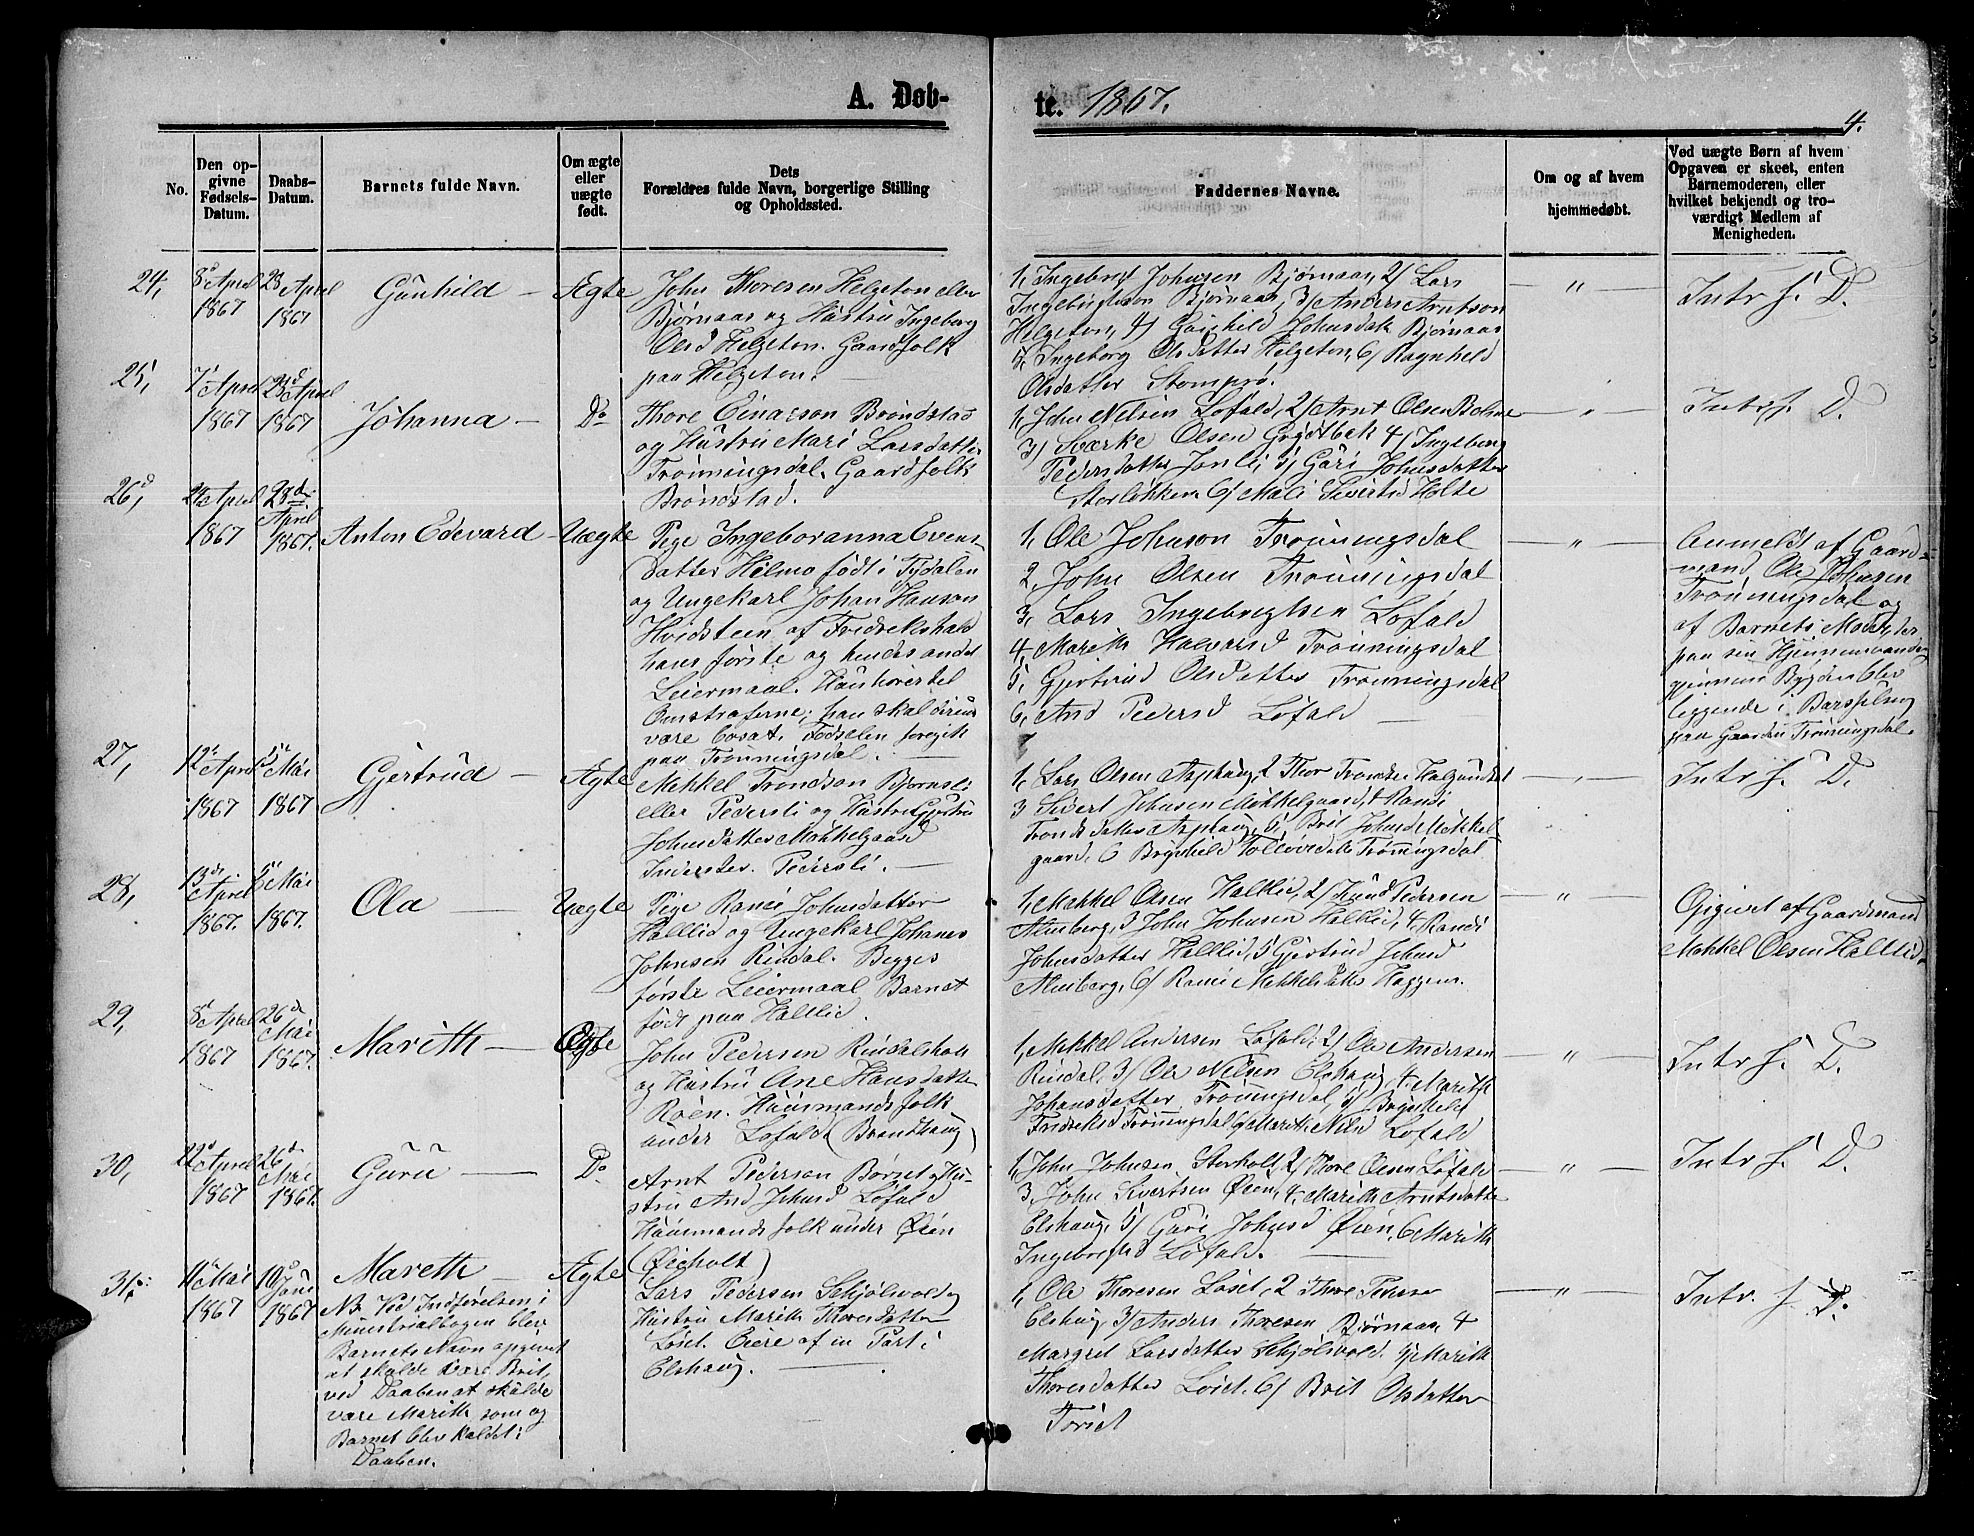 A. Døb-
te. 1867.
4.
No.
Den op-
givne
Fødsels-
Datum.
Daabs-
Datum.
Barnets fulde Navn.
Om ægte
eller
uægte
født.
Dets
Forældres fulde Navn, borgerlige Stilling
og Opholdssted.
Faddernes Navne.
Om og af hvem
hjemmedøbt.
Ved uægte Børn af hvem
Opgaven er skeet, enten
Barnemoderen, eller
hvilket bekjendt og tro-
værdigt Medlem af
Menigheden.
24,
8de April
1867
28 April
1867
Gunhild
Ægte
John Thoresen Helgeton eller
Bjørnaas og Hustru Ingeborg
Olsd Helgeton. Gaardfolk
paa Helgeton.
1, Ingebrigt Johnsen Bjørnaas, 2/ Lars
Ingebrigtsen Bjørnaas, 3/ Anders Arntson
Helgeton, 4) Gunhild Johnsdatt Bjørnaas
5, Ingeborg Olsdatter Helgeton, 6, Ragnhild
Olsdatter Stomprø.
"
Intr f. D.
25,
7de April
1867
1867
Johanna
Do
Thore Einarson Brøndstad
og Hustru Mari Larsdatter
Trønningsdal. Gaardfolk
Brøndstad.
1, John Nilsen Løfald, 2/ Arnt Olsen Bolme
3/ Sværke Olsen Grøtbek 4/ Ingeborg
Pedersdatter Jonli, 5, Guri Johnsdatter
Storløkken 6/ Mali Sivertsd Holte
"
Intr f. D.
26,
April
1867
28de
April
1867.
Anton Edevard
Uægte
Pige Ingeboranna Evens
datter Hilmo født i Tydalen
og Ungekarl Johan Hanson
Hvidsteen af Fredrekshald
hans første og hendes andet
Leiermaal.
Omstraferne; han skal
være bosat. Fødselen foregik
paa Trønningsdal.
1, Ole Johnson Trønningsdal
2, John Olsen Trønningsdal
3, Lars Ingebrigtsen Løfald
4, Marith Halvorsd Trønningsdal
5, Gjertrud Olsdatter Trønningsdal
6, And Pedersd Løfald
"
Anmeldt af Gaard-
mand Ole Johnsen
Trønningsdal og
af Barnets Moder, der
paa sin Hjemmevandring
gjennem Bygden blev
liggende i Barselseng
paa Gaarden Trønningsdal.
27,
12te April
1867
5te Mai
1867
Gjertrud
Ægte
Mekkel Trondsen Bjørnsli
eller Pedersli og Hustru Gjertru
Johnsdatter Møkkelgaard
Inderster Pedersli.
1, Lars Olsen Asphaug, 2 Thor Trondsen
3 Sivert Johnsen Møkkelgaard, 4 Randi
Tronds datter Asphaug, 5, Brit Johnsd Mekkel
gaard, 6 Trønningsdal
"
Intr f. D.
28,
13de
April
1867.
5te Mai
1867.
Ola
Uægte
Pige Ranei Johnsdatter
Hallid og Ungekarl Johanes
Johnsen Rindal. Begges
første Leiermaal Barnet
født paa Hallid.
1, Mekkel Olsen Hallid, 2/ Knud Pedersen
Almberg, 3 John Johnsen Hallid, 4 Randi
Johnsdatter Hallid, 5 Gjertrud Johnsd
Almberg, 6/ Ranei Mekkelsdatter Haggen.
"
Opgivet af Gaardmand
Mekkel Olsen Hallid
29,
8de April
1867
26de
Mai
1867.
Marith
Ægte
John Pedersen Rindalsholt
og Hustru Ane Hansdatter
Roen. Huusmandsfolk
under Løfald (Brandhaug)
1, Mekkel Andersen Løfald, 2/ Ole Andersen
Rindal, 3/ Ole Nilsen Elshaug, 4, Marith
Johansdatter Trønningsdal, 5/ Brynhild
Fredriksd Trønningsdal, 6 Marith Nilsd Løfald
"
Intr f. D.
30,
22de April
1867
26de
Mai
1867.
Guru
Do.
Arnt Pederson Børset & Hu-
stru And Johnsd Løfald
Huusmandsfolk under Øien
(Øieholt)
1, John Johnsen Storholt, 2/ Thore Olsen Løfald
3, John Sivertsen Øien, 4, Marith Arntsdatter
Elshaug, 5/ Guri Johnsd Øien, 6 Marith
Ingebrigtsd Løfald.
"
Intr f. D.
31,
Mai
1867
10de
Juni
1867
Mareth
NB Ved Indførelsen i
Ministrialbogen blev
Barnets Navn opgivet
at skulde være Brit,
ved Daaben at skulde
være Marith, som og
Barnet blev kaldet i
Daaben.
Ægte
Lars Pedersen Schjølsvold og
Hustru Marith Thoresdatter
Løset. Eiere af en Part i
Elshaug.
1, Ole Thoresen Løset, 2 Thore Peders
Elshaug, 3/ Anders Thoresen Bjørnaas, 4
Margret Larsdatter Schjølsvold, 5/ Marith
Thoresdatter Løset. 6/ Brit Olsdatter
Toriet
"
Intr. f. D.